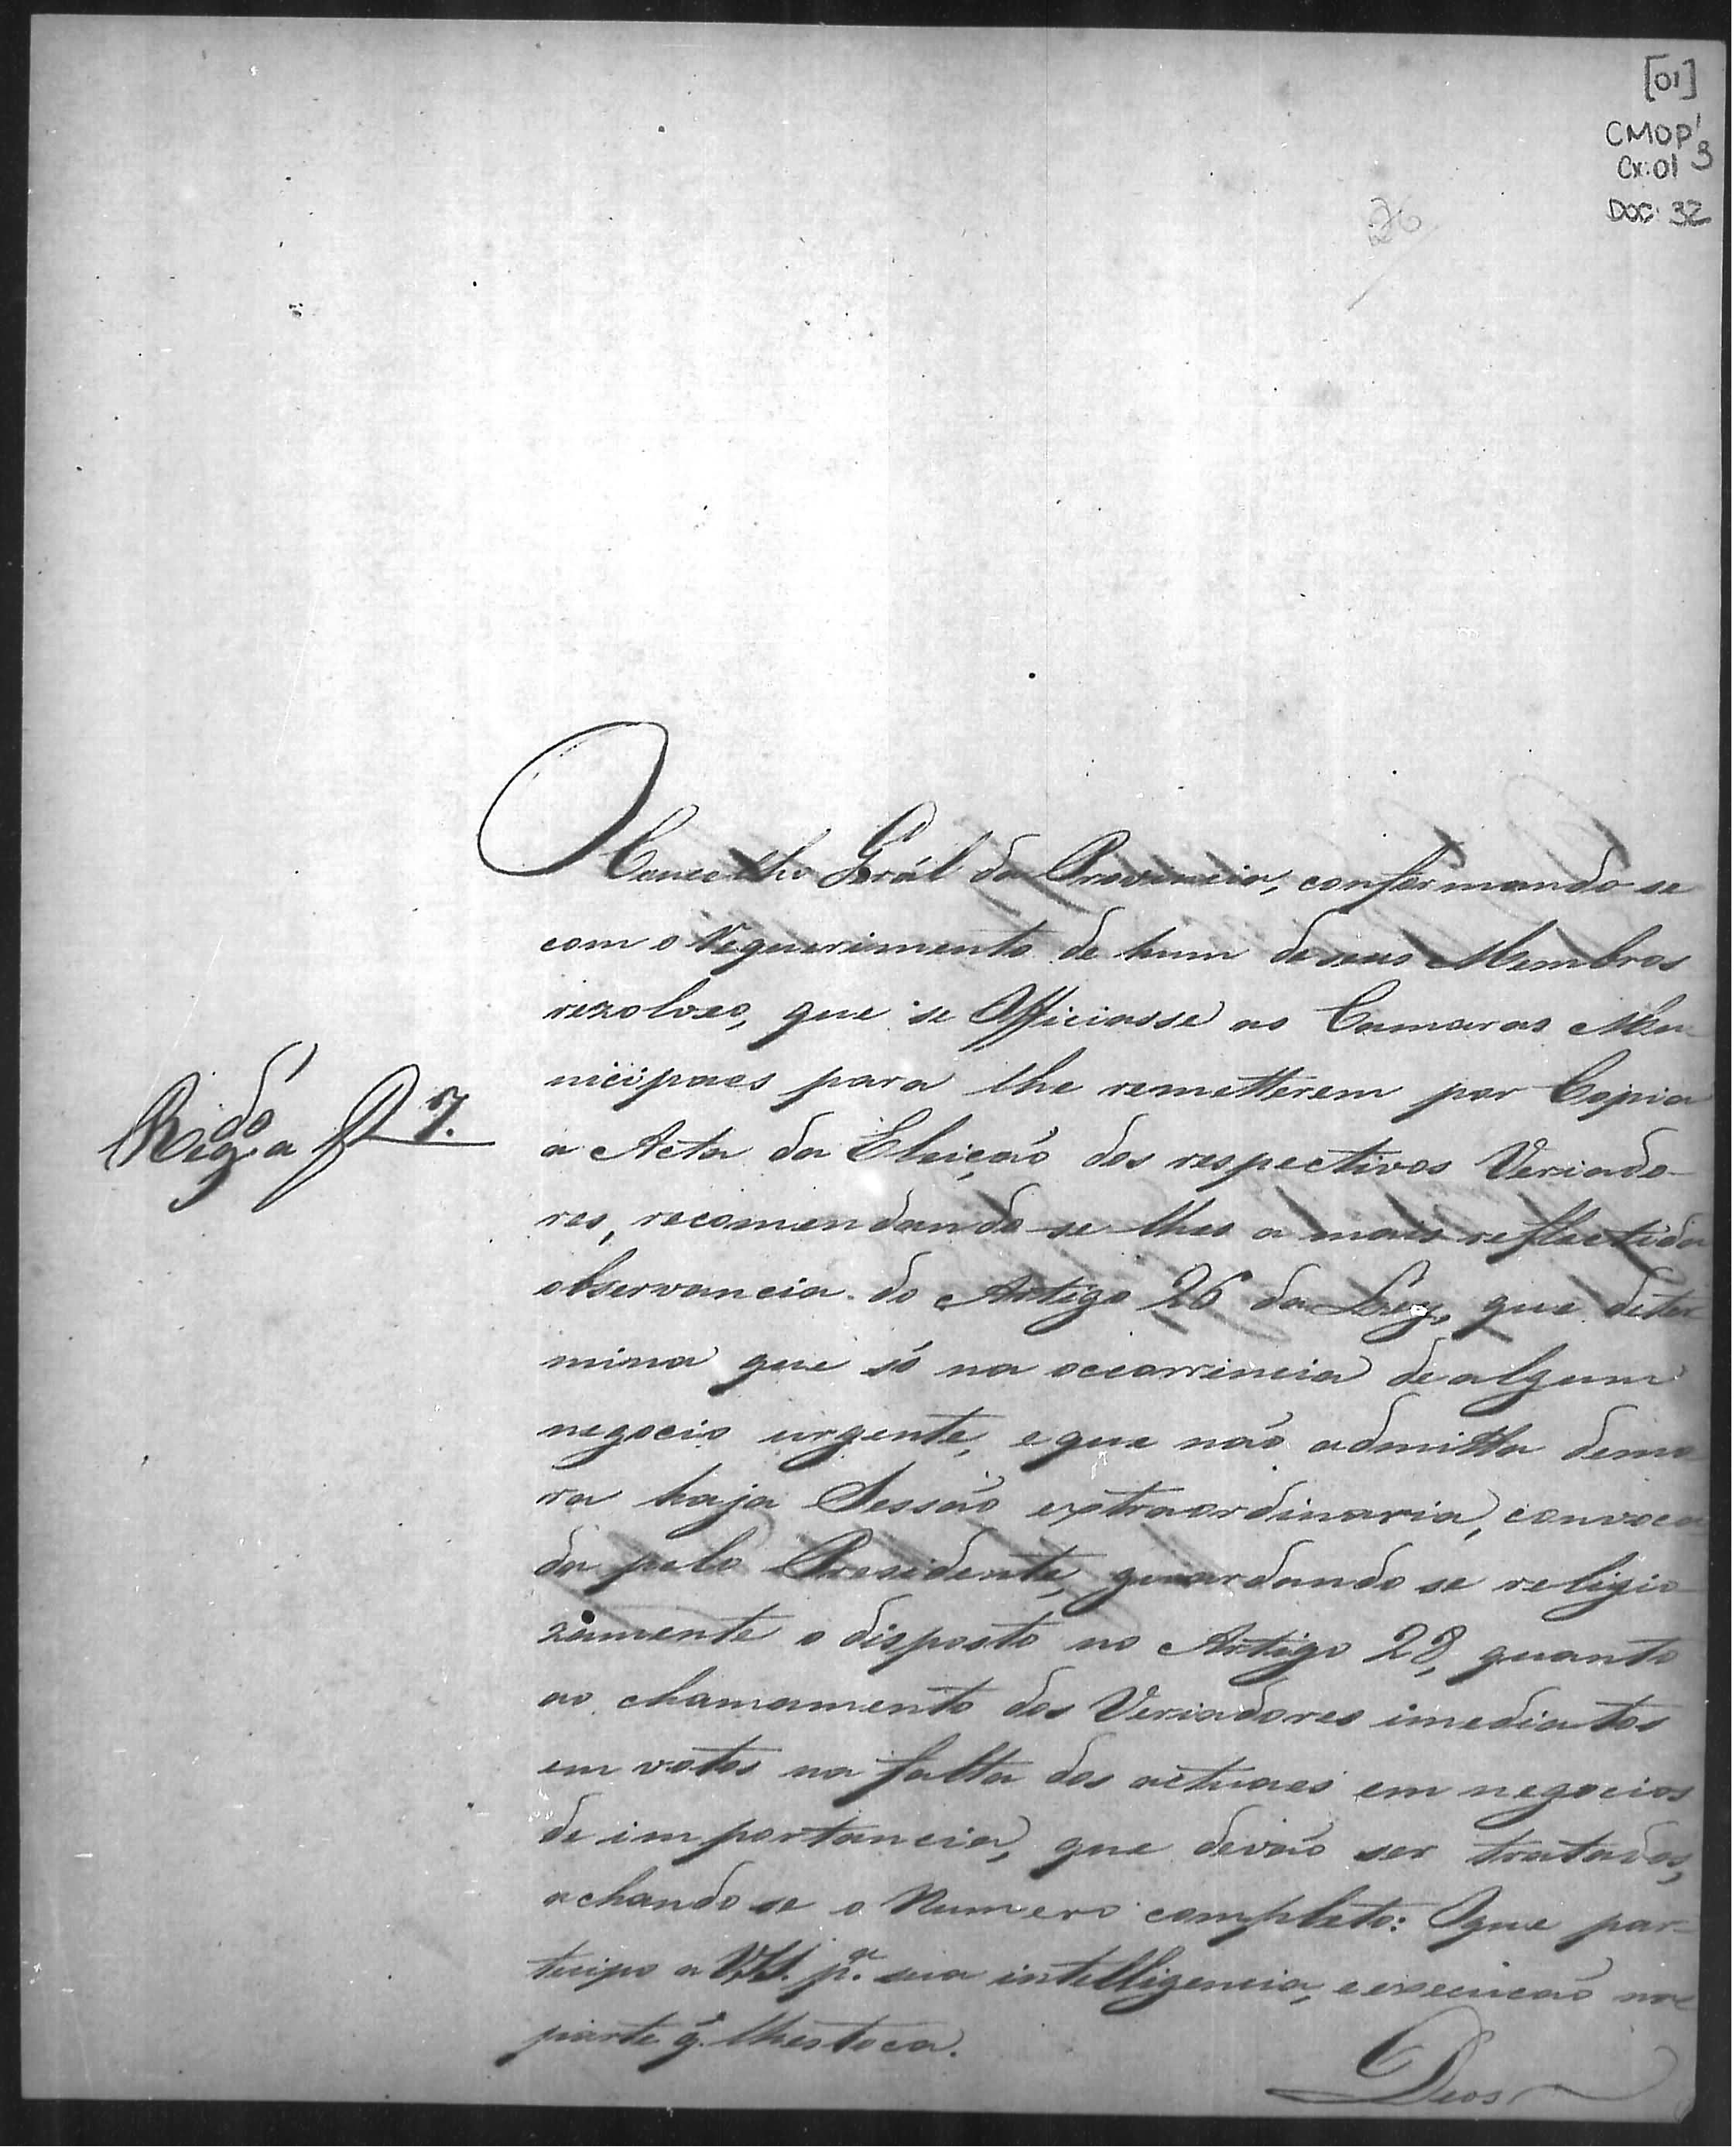 [01]
CMOP 1
Cx: 01 3
DOC: 32
26
O Concelho Gerál da Provincia, conformando-se
com o requerimento de hum de seus Membros
rezolveo, que se Officiasse as Camaras Mu-
nicipaes para lhe remetterem por Copia
Reg.do a f 7.
a Acta da Eleiçaõ dos respectivos Veriado-
res, recomendando-se lhes a mais reflectida
observancia do Artigo 26 da Ley, que deter
mina que só na occorrencia de algum
negocio urgente, e que naõ admitta demo
ra haja Sessaõ extraordinaria, convoca
da pelo Presidente, guardando se religio-
zamente o disposto no Artigo 28, quanto
ao chamamento dos Veriadores imediatos
em votos na falta dos actuaes em negocios
de importancia, que devaõ ser tratados,
achando se o Numero completo: O que par-
ticipo a VS. p.a sua intelligencia, e execucaõ na
parte q. lhes toca.
Deos